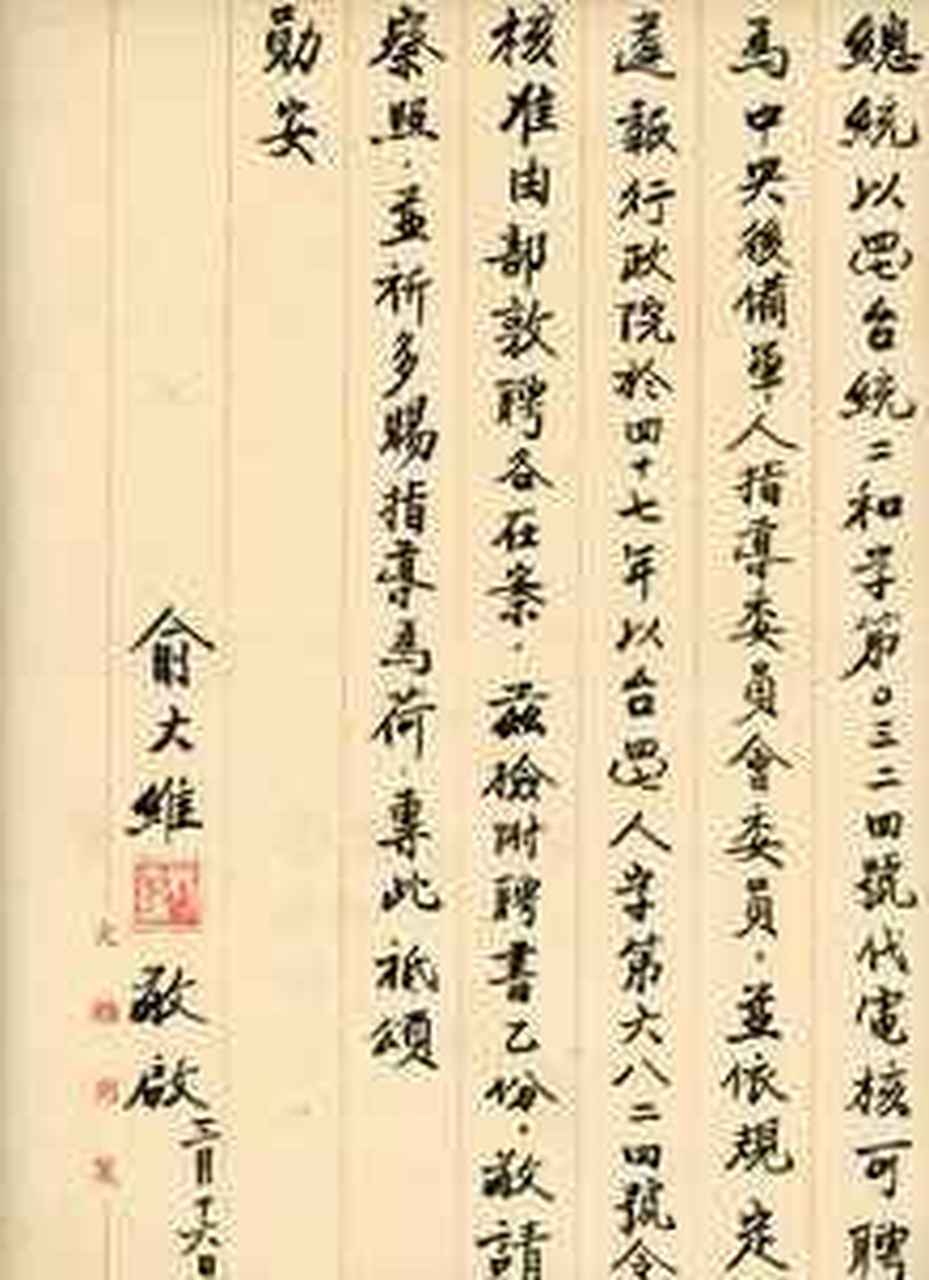 總統以㘣台統二和字第〇三二四號代電核可聘
為中央後備軍人指導委員會委員。並依規定
遞報行政院於四十七年以台㘣人字第六八二四號令
核准由部敦聘各在案。茲檢附聘書乙份。敬請
察照。並祈多賜指導為荷。專此祗頌
勛安
俞大維 敬啟
三月十六日
大維用箋